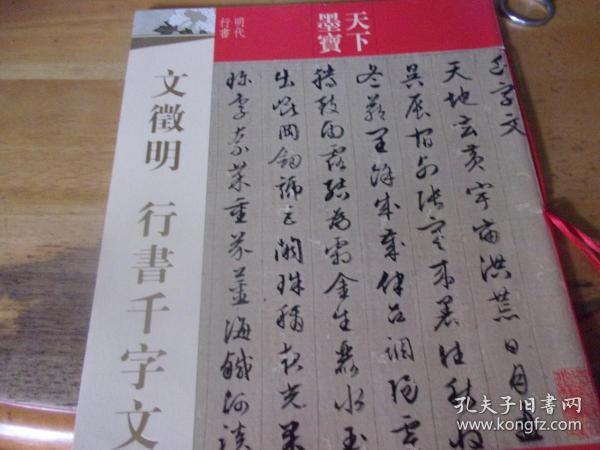 天下
墨寶
明代
行書
文徵明 行書千字文
千字文
天地玄黄宇宙洪荒日月盈
昃辰宿列張寒来暑往秋收
冬藏閏餘成歲律召調陽雲
騰致雨露結為霜金生麗水玉
出崑岡劍號巨闕珠稱夜光果
珍李柰菜重芥薑海鹹河淡
孔夫子旧书网
www.kongfz.com